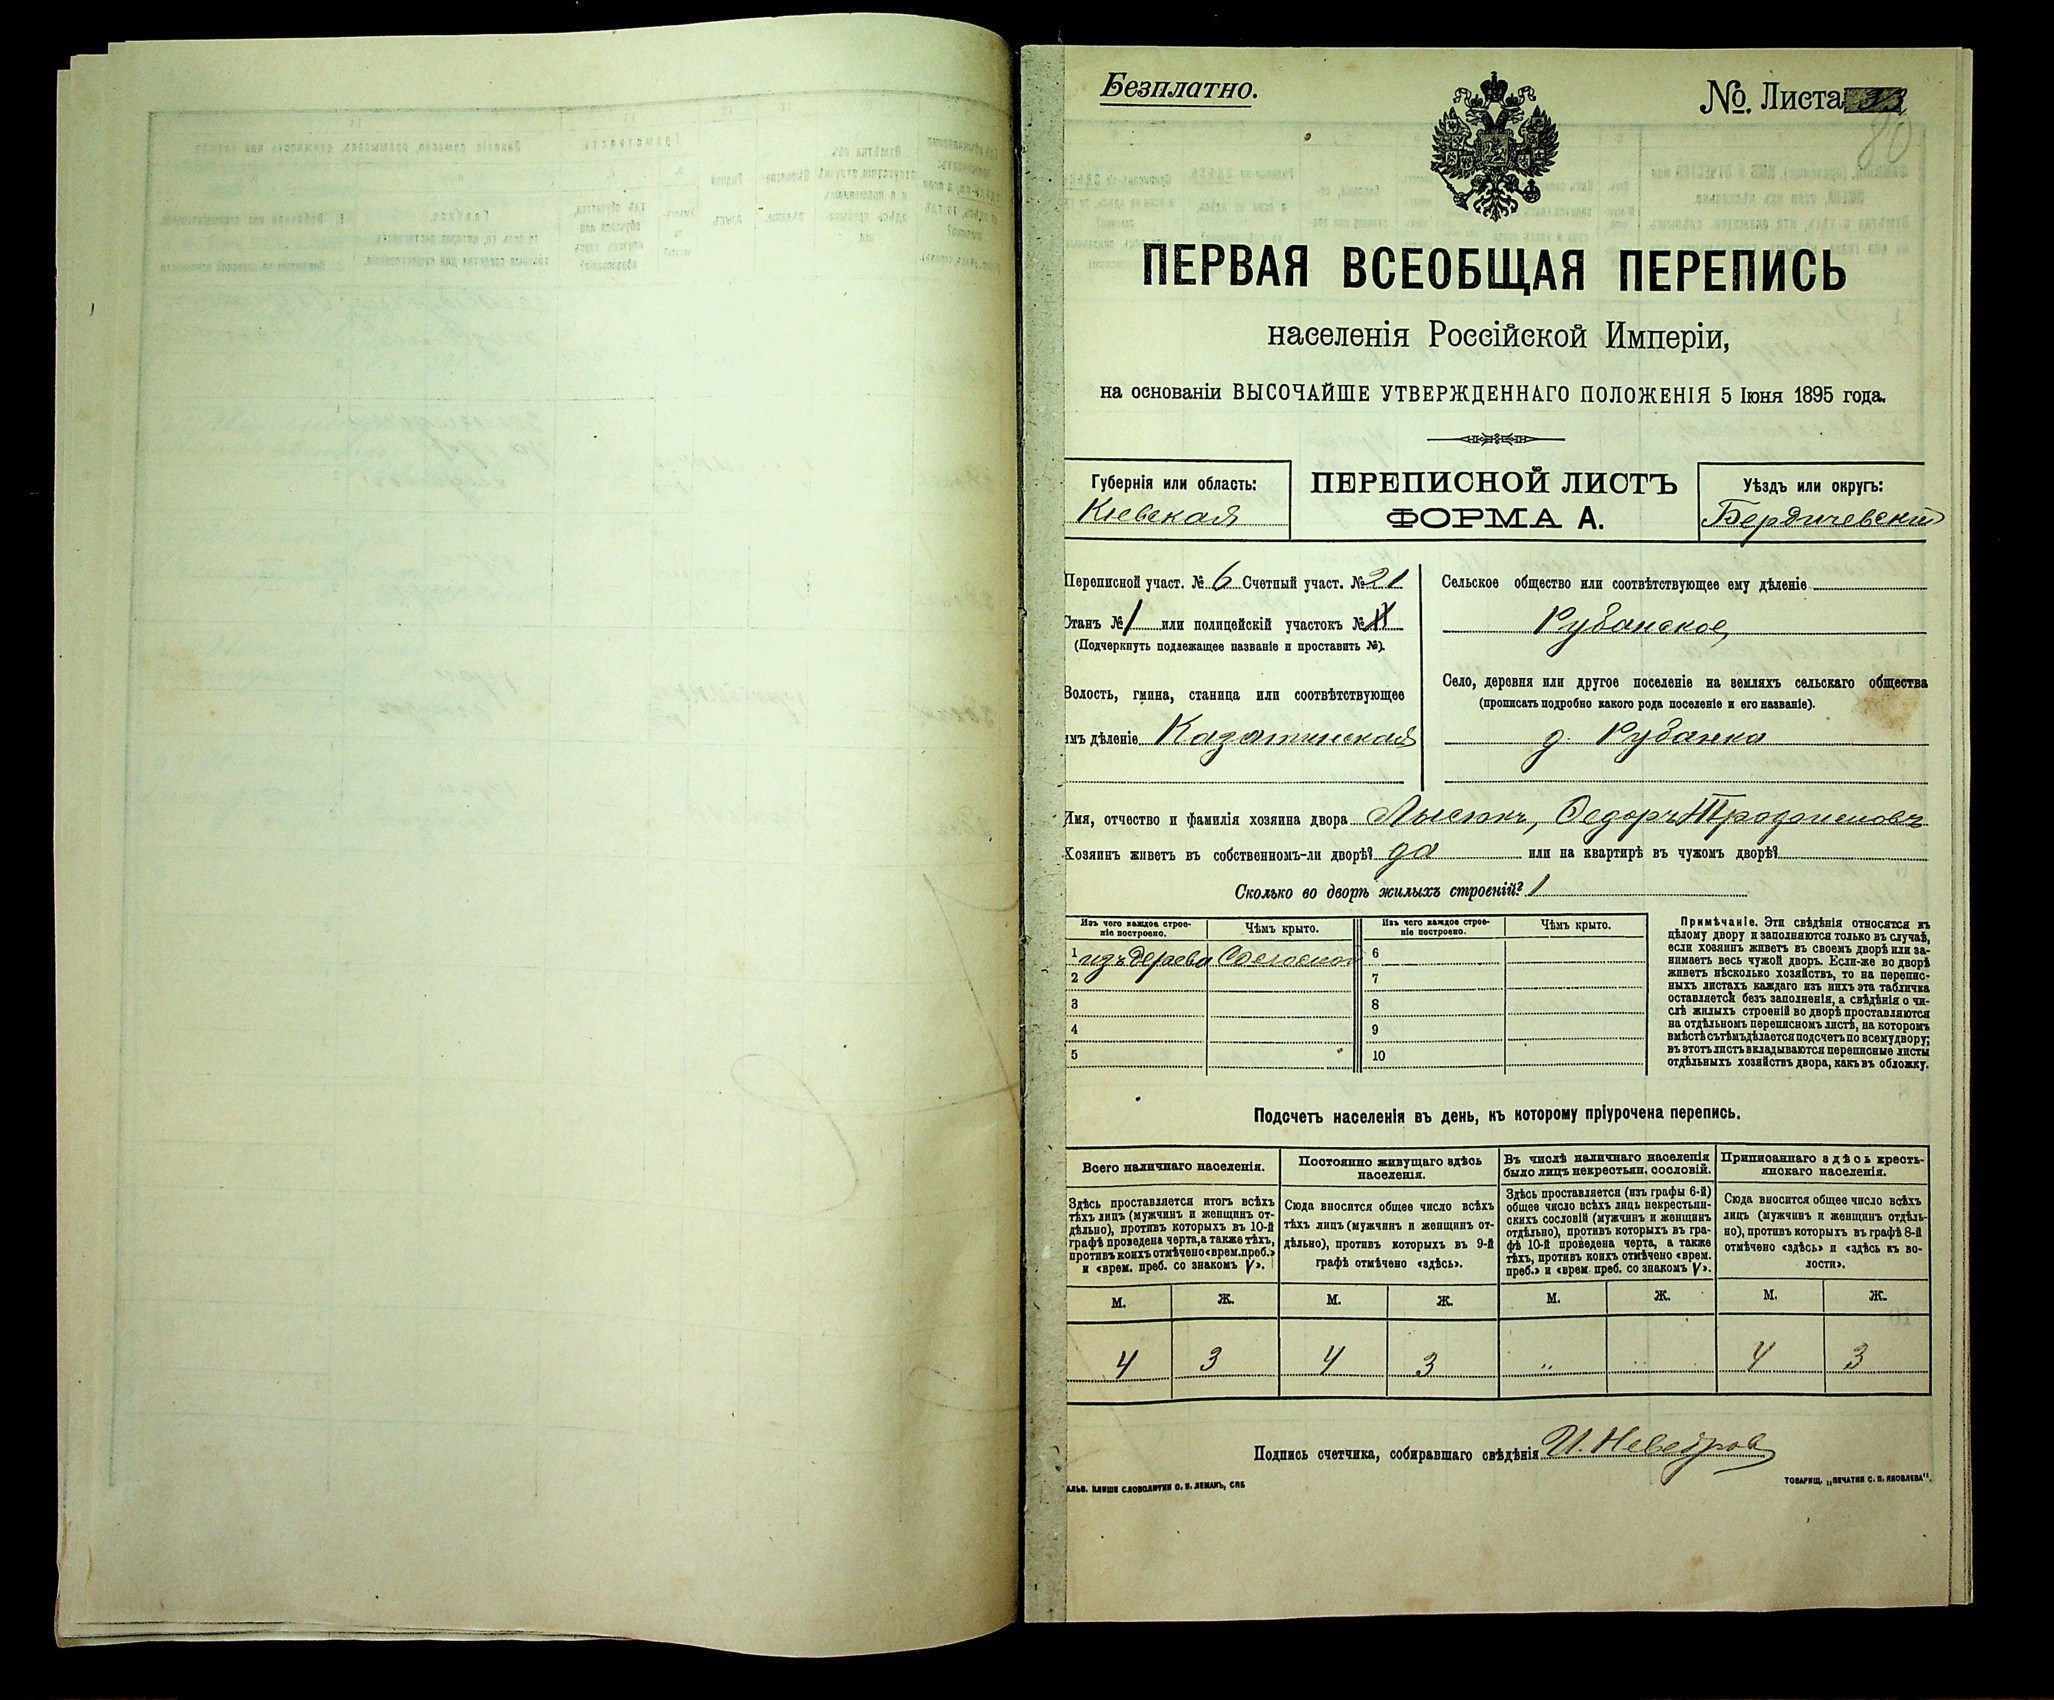 Безплатно.
№. Листа 33
80
ПЕРВАЯ ВСЕОБЩАЯ ПЕРЕПИСЬ
населенія Россійской Имперіи,
на основаніи ВЫСОЧАЙШЕ УТВЕРЖДЕННАГО ПОЛОЖЕНІЯ 5 Іюня 1895 года.
Губернія или область:
Кіевская
ПЕРЕПИСНОЙ ЛИСТЪ
ФОРМА А.
Уѣздъ или округъ:
Бердичевскій
Переписной участ. № 6 Счетный участ. № 21
Станъ № 1 или полицейскій участокъ №
(Подчеркнуть подлежащее названіе и проставить №).
Волость, гмина, станица или соотвѣтствующее
имъ дѣленіе Казатинская
Сельское общество или соотвѣтствующее ему дѣленіе
Рубанское
Село, деревня или другое поселеніе на земляхъ сельскаго общества
(прописать подробно какого рода поселеніе и его названіе).
д. Рубанка
Имя, отчество и фамилія хозяина двора Лысюкъ, Федоръ
Хозяинъ живетъ въ собственномъ-ли дворѣ? да или на квартирѣ въ чужомъ дворѣ?
Сколько во дворѣ жилыхъ строеній? 1
Изъ чего каждое строе-
ніе построено.
Чѣмъ крыто.
Изъ чего каждое строе-
ніе построено.
Чѣмъ крыто.
1 изъ дерева Соломой 6
2 7
3 8
4 9
5 10
Примѣчаніе. Эти свѣдѣнія относятся къ
цѣлому двору и заполняются только въ случаѣ,
если хозяинъ живетъ въ своемъ дворѣ или за-
нимаетъ весь чужой дворъ. Если-же во дворѣ
живетъ нѣсколько хозяйствъ, то на перепис-
ныхъ листахъ каждаго изъ нихъ эта табличка
оставляется безъ заполненія, а свѣдѣнія о чи-
слѣ жилыхъ строеній во дворѣ проставляются
на отдѣльномъ переписномъ листѣ, на которомъ
вмѣстѣ съ тѣмъ дѣлается подсчетъ по всему двору;
въ этотъ листъ вкладываются переписные листы
отдѣльныхъ хозяйствъ двора, какъ въ обложку.
Подсчетъ населенія въ день, къ которому пріурочена перепись.
Всего наличнаго населенія.
Здѣсь проставляется итогъ всѣхъ
тѣхъ лицъ (мужчинъ и женщинъ от-
дѣльно), противъ которыхъ въ 10-й
графѣ проведена черта, а также тѣхъ,
противъ коихъ отмѣчено «врем. преб.»
и «врем. преб. со знакомъ V».
Постоянно живущаго здѣсь
населенія.
Сюда вносится общее число всѣхъ
тѣхъ лицъ (мужчинъ и женщинъ от-
дѣльно), противъ которыхъ въ 9-й
графѣ отмѣчено «здѣсь».
Въ числѣ наличнаго населенія
было лицъ некрестьян. сословій.
Здѣсь проставляется (изъ графы 6-й)
общее число всѣхъ лицъ некрестьян-
скихъ сословій (мужчинъ и женщинъ
отдѣльно), противъ которыхъ въ гра-
фѣ 10-й проведена черта, а также
тѣхъ, противъ коихъ отмѣчено «врем.
преб.» и «врем. преб. со знакомъ V».
Приписаннаго здѣсь кресть-
янскаго населенія.
Сюда вносится общее число всѣхъ
лицъ (мужчинъ и женщинъ отдѣль-
но), противъ которыхъ въ графѣ 8-й
отмѣчено «здѣсь» и «здѣсь къ во-
лости».
М. Ж. М. Ж. М. Ж. М. Ж.
4 3 4 3 " " 4 3
Подпись счетчика, собиравшаго свѣдѣнія И. Неведров
АЛЬВ. КЛИШЕ СЛОВОЛИТНИ О. И. ЛЕМАНЪ, СПБ
ТОВАРИЩ. „ПЕЧАТНИ С. П. ЯКОВЛЕВА".